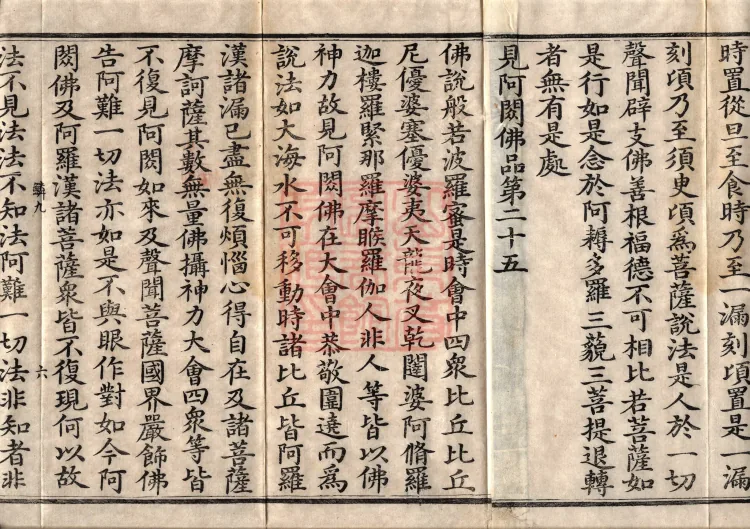 時置從旦至食時乃至一漏刻頃置是一漏
刻頃乃至須臾頃爲菩薩說法是人於一切
聲聞辟支佛善根福德不可相比若菩薩如
是行如是念於阿耨多羅三藐三菩提退轉
者無有是處
見阿閦佛品第二十五
佛說般若波羅蜜是時會中四衆比丘比丘
尼優婆塞優婆夷天龍夜叉乾闥婆阿脩羅
迦樓羅緊那羅摩睺羅伽人非人等皆以佛
神力故見阿閦佛在大會中恭敬圍遶而爲
說法如大海水不可移動時諸比丘皆阿羅
漢諸漏已盡無復煩惱心得自在及諸菩薩
摩訶薩其數無量佛攝神力大會四衆等皆
不復見阿閦如來及聲聞菩薩國界嚴飾佛
告阿難一切法亦如是不與眼作對如今阿
閦佛及阿羅漢諸菩薩衆皆不復現何以故
九 六
法不見法法不知法阿難一切法非知者非